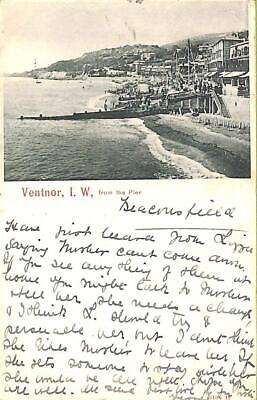 Ventnor, I. W, from the Pier
Beaconsfield
Have just heard from Lizzie
saying Mother cant come away
If you see any of them at
home you might talk to Mother
& tell her she needs a change
& I think L. should try &
persuade her but I dont think
she likes Mother to leave her if
she gets someone to stay
she would be all right. Hope you
are well. We